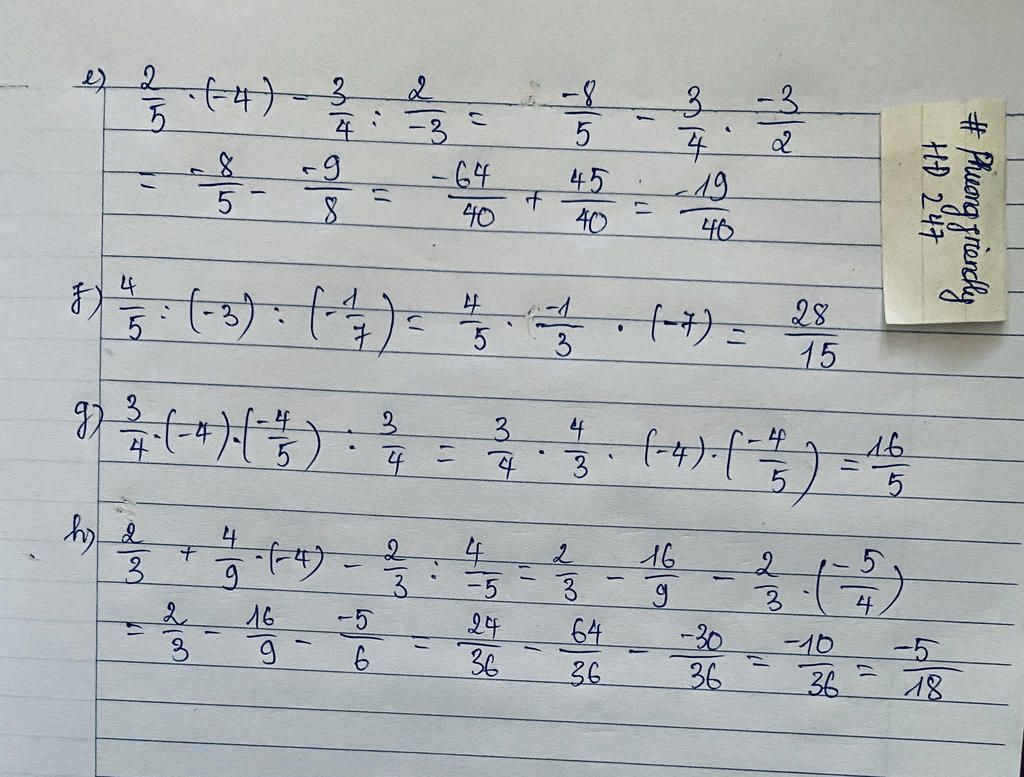 e) 2/5 · (-4) - 3/4 : 2/-3 = -8/5 - 3/4 · -3/2
= -8/5 - -9/8 = -64/40 + 45/40 = -19/40
f) 4/5 : (-3) : (-1/7) = 4/5 · -1/3 · (-7) = 28/15
g) 3/4 · (-4) · (-4/5) : 3/4 = 3/4 · 4/3 · (-4) · (-4/5) = 16/5
h) 2/3 + 4/9 · (-4) - 2/3 : 4/-5 = 2/3 - 16/9 - 2/3 · (-5/4)
= 2/3 - 16/9 - -5/6 = 24/36 - 64/36 - -30/36 = -10/36 = -5/18
# Phuong friendly
HD 247